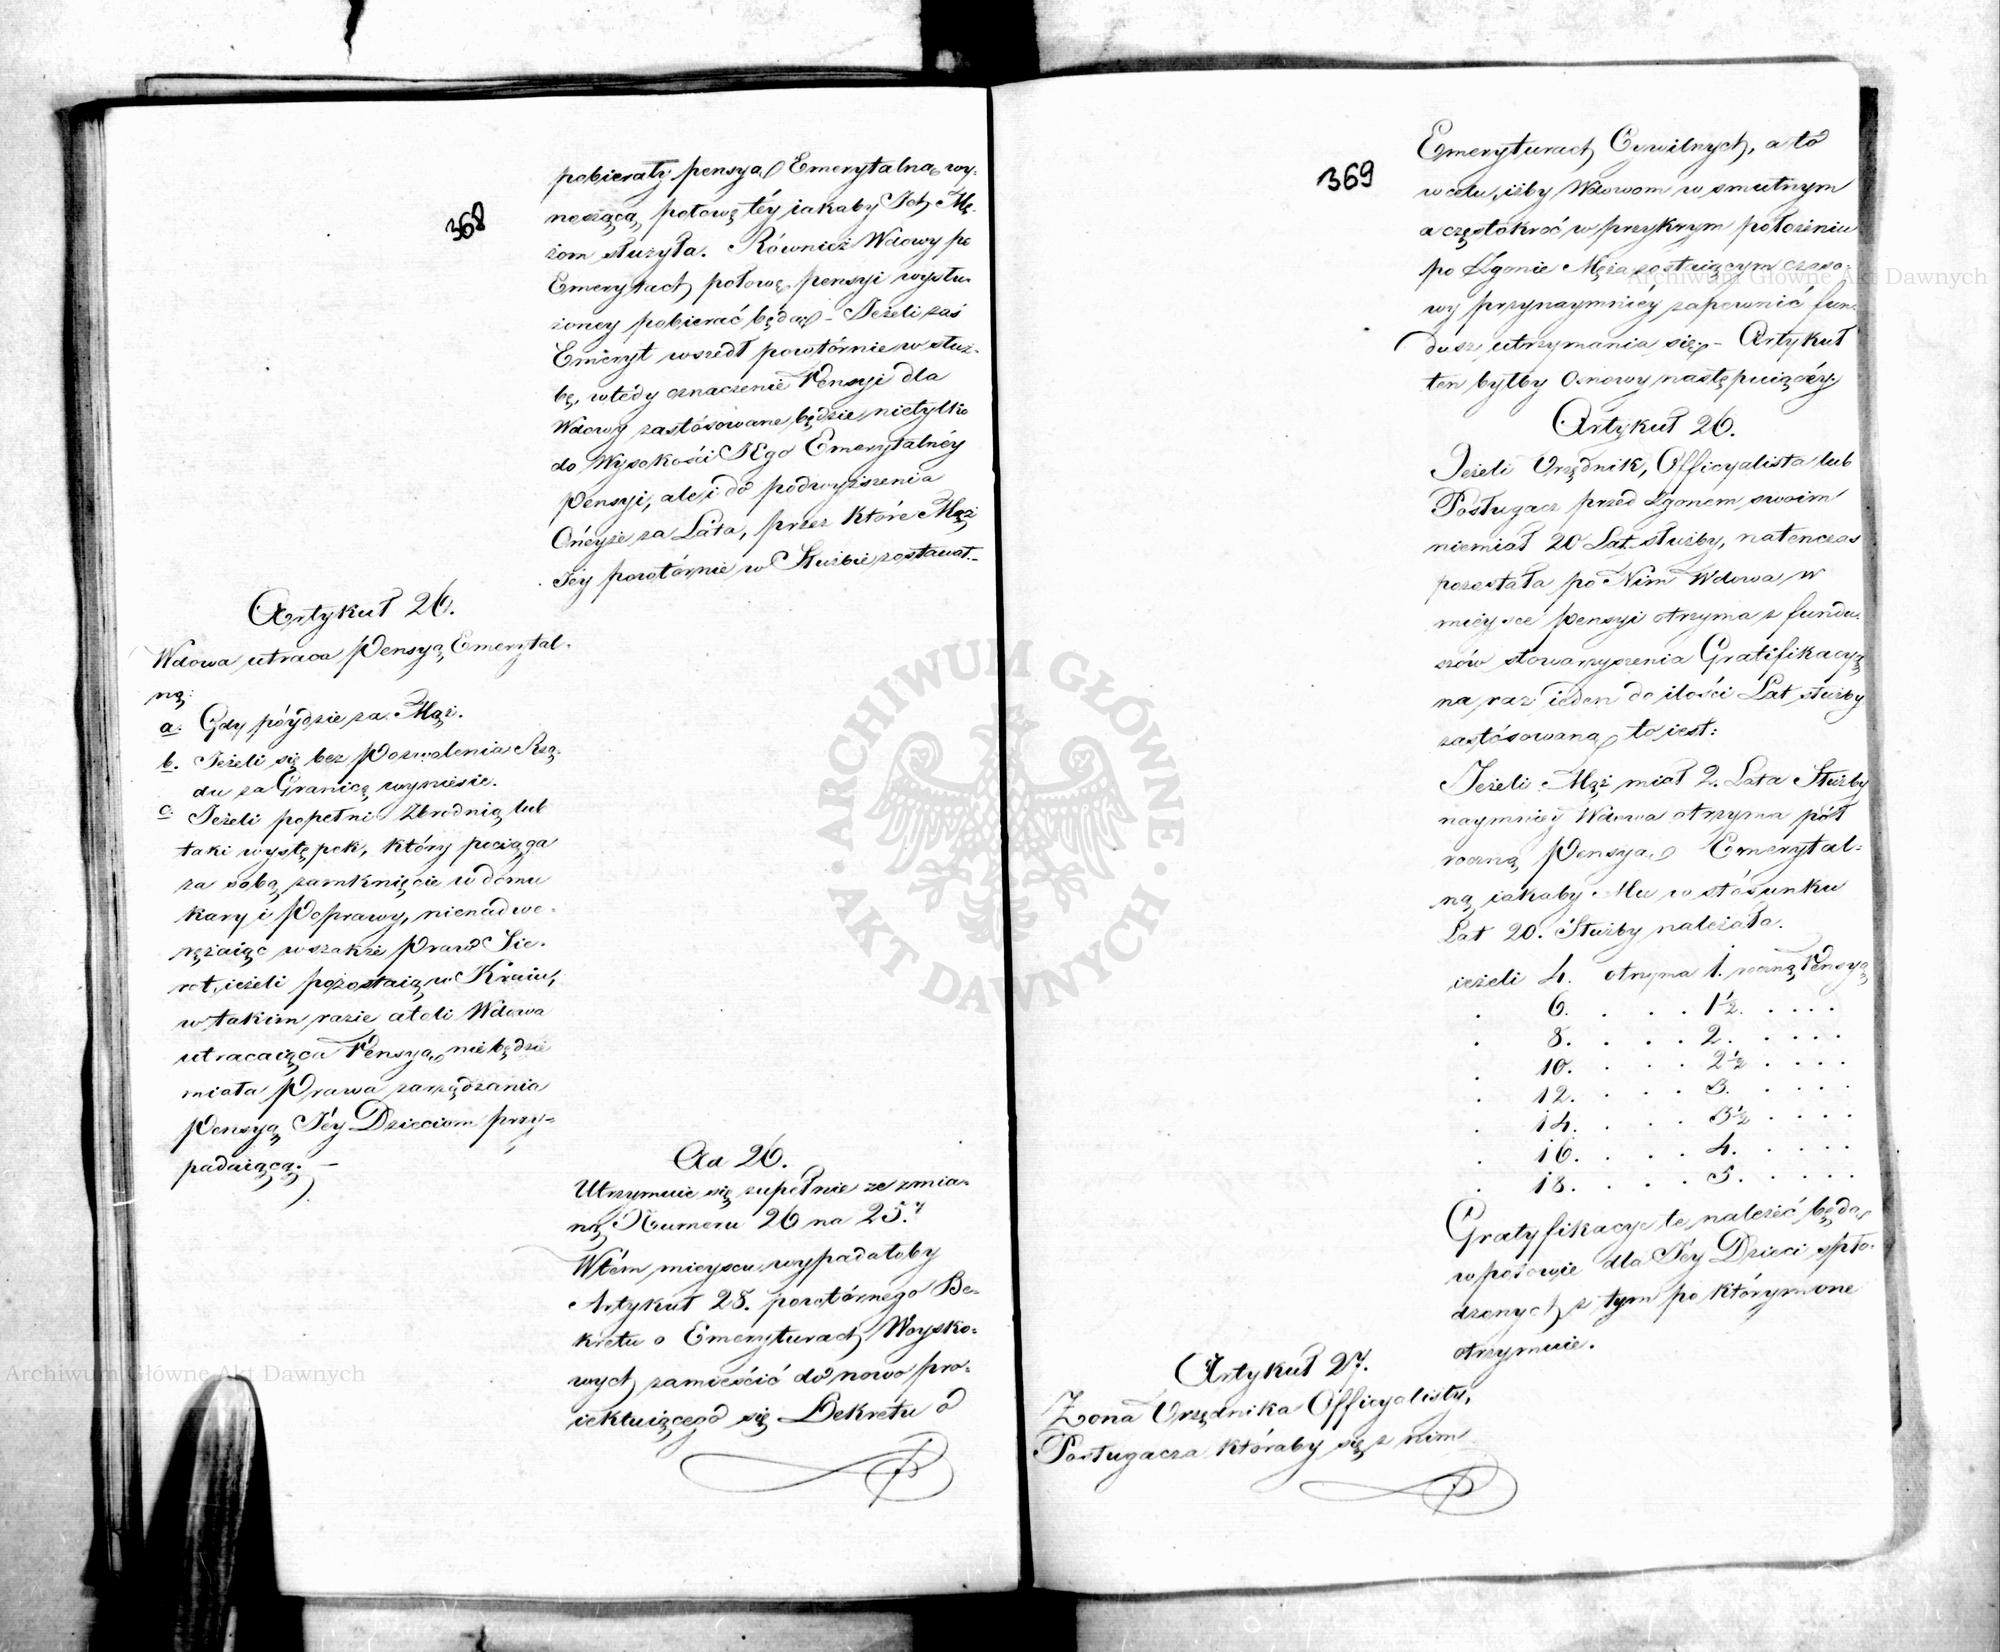 368
pobierały pensyą Emerytalną wy-
noszącą połowę téy iakaby Ich Mę-
żom służyła. Również Wdowy po
Emerytach połowę pensyi wysłu-
żoney pobierać będą – Jeżeli zaś
Emeryt wszedł powtórnie w służ-
bę, wtedy oznaczenie Pensyi dla
Wdowy zastósowane będzie nietylko
do Wysokości JEgo Emerytalnéy
Pensyi, ale i do podwyższenia
Onéyże za Lata, przez które Mąż
Jéy powtórnie w Służbie zostawał.–
Artykuł 26.
Wdowa utraca Pensyą Emerytal-
ną:
a. Gdy póydzie za Mąż.
b. Jeżeli się bez Pozwolenia Rzą-
du za Granicę wyniesie.
c. Jeżeli popełni Zbrodnią lub
taki występek, który pociąga
za sobą zamknięcie w domu
kary i Poprawy, nienadwe-
rężaiąc wszakże Praw Sie-
rot, ieżeli pozostaią w Kraiu,
w takim razie atoli Wdowa
utracaiąca Pensyą, niebędzie
miała Prawa zarządzania
Pensyą Jéy Dzieciom przy-
padaiącą. –
Ad 26.
Utrzymuie się zupełnie ze zmia-
ną Numeru 26 na 25.
Wtém mieyscu wypadałoby
Artykuł 28. powtórnego De-
kretu o Emeryturach Woysko-
wych zamieścić do nowo pro-
iektuiącego się Dekretu o
369
Emeryturach Cywilnych, a to
w celu, iżby Wdowom w smutnym
a częstokroć w przykrym położeniu
po Zgonie Męża zostaiącym czaso-
wy przynaymniéy zapewnić fun-
dusz utrzymania się – Artykuł
ten byłby Osnowy następuiącéy
Artykuł 26.
Jeżeli Urzędnik, Officyalista lub
Posługacz przed Zgonem swoim
niemiał 20 Lat służby, natenczas
pozostała po Nim Wdowa w
mieysce pensyi otrzyma z fundu-
szów stowarzyszenia Gratifikacyą
na raz ieden do ilości Lat służby
zastósowaną, to iest:
Jeżeli Mąż miał 2. Lata Służby
naymniéy Wdowa otrzyma pół
roczną Pensyą Emerytal-
ną iakaby Mu w stósunku
Lat 20. Służby należała.
ieżeli 4. otrzyma 1. roczną Pensyą
. 6. . . . . 1½. . . . .
. 8. . . . . 2. . . . .
. 10. . . . . 2½ . . . .
. 12. . . . . 3. . . . .
. 14. . . . . 3½ . . . .
. 16. . . . . 4. . . . .
. 18. . . . . 5. . . . .
Gratyfikacye te należéć będą
w połowie dla Jéy Dzieci spło-
dzonych z tym po którym one
otrzymuie.
Artykuł 27.
Zona Urzędnika Officyalisty,
Posługacza któraby się z nim
ARCHIWUM GŁÓWNE AKT DAWNYCH
Archiwum Główne Akt Dawnych
Archiwum Główne Akt Dawnych